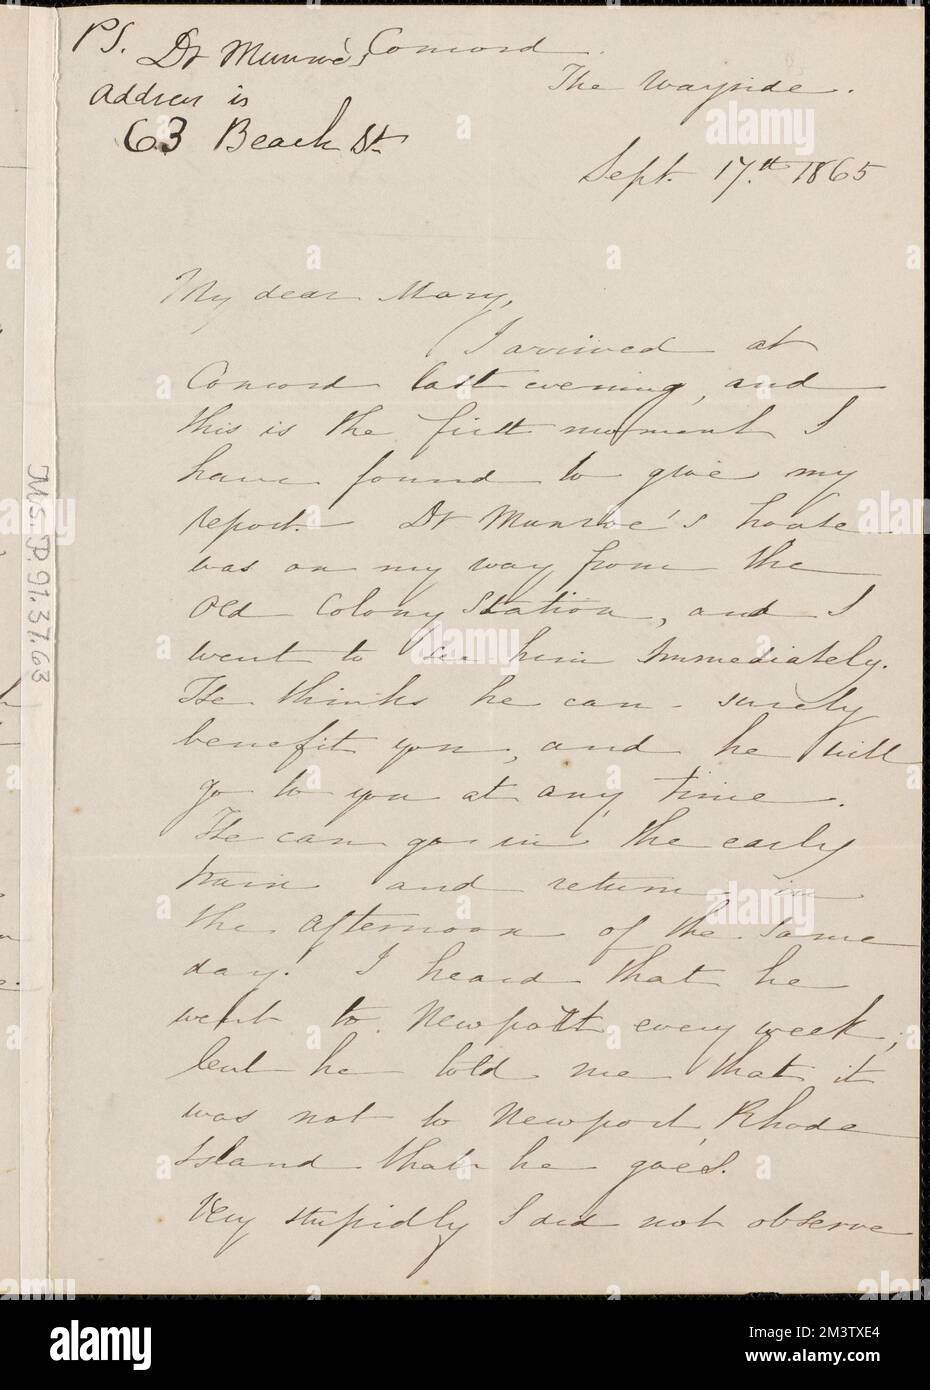 PS. Dr Munroe's
Address is
63 Beach St.
Concord
The Wayside.
Sept. 17th 1865
My dear Mary,
I arrived at
Concord last evening, and
this is the first moment I
have found to give my
report. Dr Munroe's house
was on my way from the
Old Colony Station, and I
went to see him immediately.
He thinks he can surely
benefit you, and he will
go to you at any time.
He can go in the early
train and return in
the afternoon of the same
day. I heard that he
went to Newport every week,
but he told me that it
was not to Newport, Rhode
Island that he goes.
Very stupidly I did not observe
Ms. P. 91.37.63
alamy
Image ID: 2M3TXE4
www.alamy.com